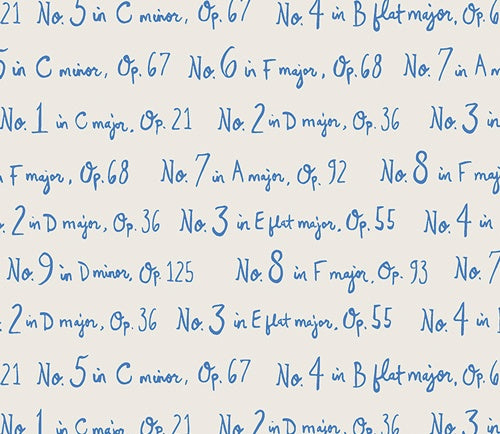 21 No. 5 in C minor, Op. 67 No. 4 in B flat major, Op. 6
5 in C minor, Op. 67 No. 6 in F major, Op. 68 No. 7 in A m
No. 1 in C major, Op. 21 No. 2 in D major, Op. 36 No. 3 in
F major, Op. 68 No. 7 in A major, Op. 92 No. 8 in F maj
. 2 in D major, Op. 36 No. 3 in E flat major, Op. 55 No. 4 in
No. 9 in D minor, Op. 125 No. 8 in F major, Op. 93 No. 7
. 2 in D major, Op. 36 No. 3 in E flat major, Op. 55 No. 4 in
21 No. 5 in C minor, Op. 67 No. 4 in B flat major, Op. 6
No. 1 in C major, Op. 21 No. 2 in D major, Op. 36 No. 3 in